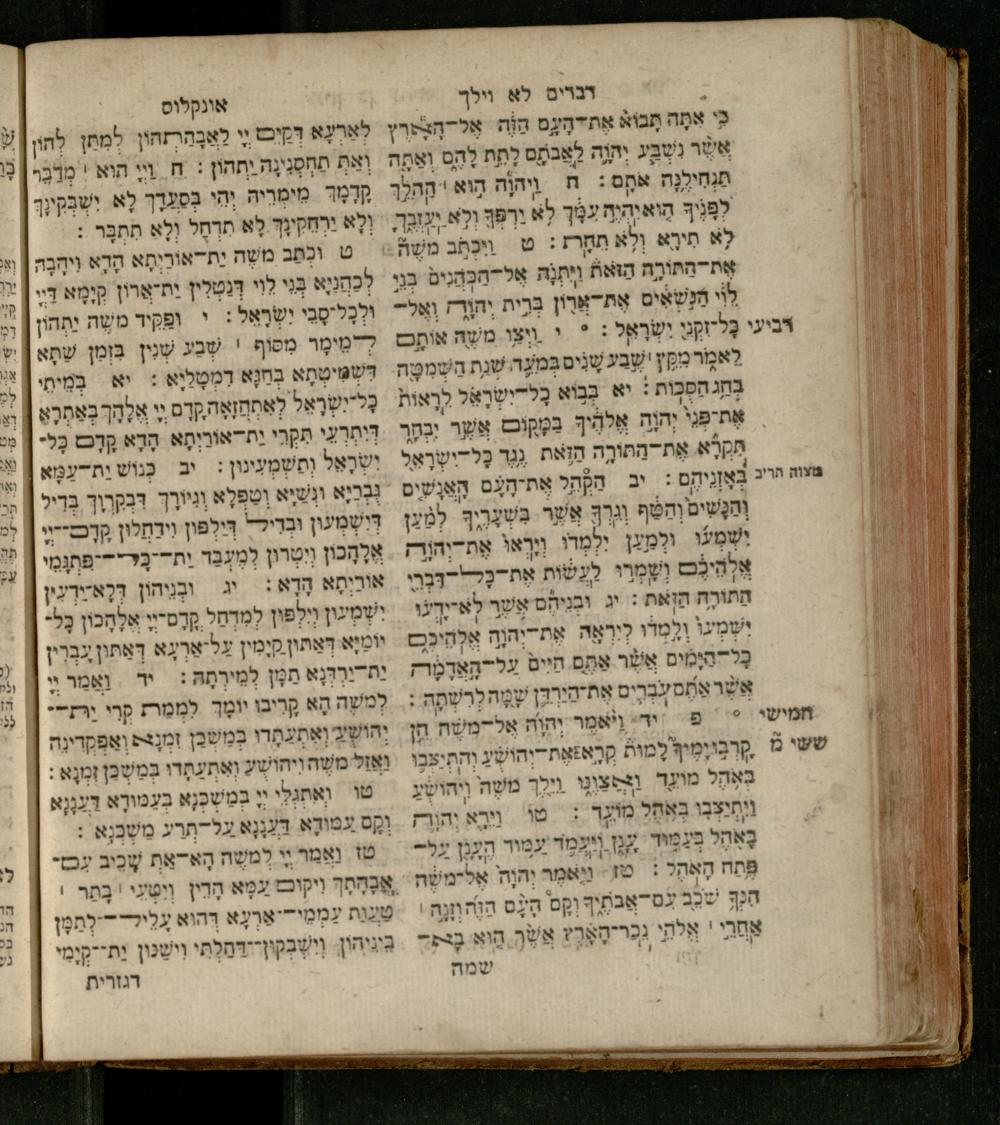 דברים לא וילך
כִּי אַתָּה תָּבוֹא אֶת־הָעָם הַזֶּה אֶל־הָאָרֶץ
אֲשֶׁר נִשְׁבַּע יְהוָֹה לַאֲבֹתָם לָתֵת לָהֶם וְאַתָּה
תַּנְחִילֶנָּה אֹתָם : ח וַיהוָֹה הוּא ׀ הַהֹלֵךְ
לְפָנֶיךָ הוּא יִהְיֶה עִמָּךְ לֹא יַרְפְּךָ וְלֹא יַעַזְבֶךָּ
לֹא תִירָא וְלֹא תֵחָת : ט וַיִּכְתֹּב משֶׁה
אֶת־הַתּוֹרָה הַזֹּאת וַיִּתְּנָהּ אֶל־הַכֹּהֲנִים בְּנֵי
לֵוִי הַנֹּשְׂאִים אֶת־אֲרוֹן בְּרִית יְהוָֹה וְאֶל־
רביעי כָּל־זִקְנֵי יִשְׂרָאֵל : ° י וַיְצַו משֶׁה אוֹתָם
לֵאמֹר מִקֵּץ ׀ שֶׁבַע שָׁנִים בְּמֹעֵד שְׁנַת הַשְּׁמִטָּה
בְּחַג הַסֻּכּוֹת : יא בְּבוֹא כָל־יִשְׂרָאֵל לֵרָאוֹת
אֶת־פְּנֵי יְהוָֹה אֱלֹהֶיךָ בַּמָּקוֹם אֲשֶׁר יִבְחָר
תִּקְרָא אֶת־הַתּוֹרָה הַזֹּאת נֶגֶד כָּל־יִשְׂרָאֵל
מצוה תריב בְּאָזְנֵיהֶם : יב הַקְהֵל אֶת־הָעָם הָאֲנָשִׁים
וְהַנָּשִׁים וְהַטַּף וְגֵרְךָ אֲשֶׁר בִּשְׁעָרֶיךָ לְמַעַן
יִשְׁמְעוּ וּלְמַעַן יִלְמְדוּ וְיָרְאוּ אֶת־יְהוָֹה
אֱלֹהֵיכֶם וְשָׁמְרוּ לַעֲשׂוֹת אֶת־כָּל־דִּבְרֵי
הַתּוֹרָה הַזֹּאת : יג וּבְנֵיהֶם אֲשֶׁר לֹא־יָדְעוּ
יִשְׁמְעוּ וְלָמְדוּ לְיִרְאָה אֶת־יְהוָֹה אֱלֹהֵיכֶם
כָּל־הַיָּמִים אֲשֶׁר אַתֶּם חַיִּים עַל־הָאֲדָמָה
אֲשֶׁר אַתֶּם עֹבְרִים אֶת־הַיַּרְדֵּן שָׁמָּה לְרִשְׁתָּהּ :
חמישי ° פ יד וַיֹּאמֶר יְהוָֹה אֶל־משֶׁה הֵן
ששי מ קָרְבוּ יָמֶיךָ לָמוּת קְרָא אֶת־יְהוֹשֻׁעַ וְהִתְיַצְּבוּ
בְּאֹהֶל מוֹעֵד וַאֲצַוֶּנּוּ וַיֵּלֶךְ משֶׁה וִיהוֹשֻׁעַ
וַיִּתְיַצְּבוּ בְּאֹהֶל מוֹעֵד : טו וַיֵּרָא יְהוָֹה
בָּאֹהֶל בְּעַמּוּד עָנָן וַיַּעֲמֹד עַמּוּד הֶעָנָן עַל־
פֶּתַח הָאֹהֶל : טז וַיֹּאמֶר יְהוָֹה אֶל־משֶׁה
הִנְּךָ שֹׁכֵב עִם־אֲבֹתֶיךָ וְקָם הָעָם הַזֶּה וְזָנָה ׀
אַחֲרֵי ׀ אֱלֹהֵי נֵכַר־הָאָרֶץ אֲשֶׁר הוּא בָא־
שמה
אונקלוס
לְאַרְעָא דְּקַיִּם יְיָ לַאֲבָהַתְהוֹן לְמִתַּן לְהוֹן
וְאַתְּ תַּחְסְנִינַהּ יַתְהוֹן : ח וַיְיָ הוּא ׀ מְדַבֵּר
קֳדָמָךְ מֵימְרֵיהּ יְהֵי בְּסַעֲדָךְ לָא יִשְׁבְּקִינָךְ
וְלָא יַרְחֲקִינָךְ לָא תִדְחַל וְלָא תִתְּבָר :
ט וּכְתַב משֶׁה יַת־אוֹרַיְתָא הָדָא וִיהָבַהּ
לְכָהֲנַיָּא בְּנֵי לֵוִי דְּנָטְלִין יַת־אֲרוֹן קְיָמָא דַּיְיָ
וּלְכָל־סָבֵי יִשְׂרָאֵל : י וּפַקֵּיד משֶׁה יַתְהוֹן
לְמֵימָר מִסּוֹף ׀ שְׁבַע שְׁנִין בִּזְמַן שַׁתָּא
דִּשְׁמִיטְתָא בְּחַגָּא דִמְטַלַּיָּא : יא בְּמֵיתֵי
כָל־יִשְׂרָאֵל לְאִתְחֲזָאָה קֳדָם יְיָ אֱלָהָךְ בְּאַתְרָא
דְּיִתְרְעֵי תִּקְרֵי יַת־אוֹרַיְתָא הָדָא קֳדָם כָּל־
יִשְׂרָאֵל וְתַשְׁמְעִינוּן : יב כְּנוֹשׁ יַת־עַמָּא
גֻּבְרַיָּא וּנְשַׁיָּא וְטַפְלָא וְגִיּוֹרָךְ דִּבְקִרְוָךְ בְּדִיל
דְּיִשְׁמְעוּן וּבְדִיל דְּיֵלְפוּן וְיִדְחֲלוּן קֳדָם־יְיָ
אֱלָהֲכוֹן וְיִטְּרוּן לְמֶעְבַּד יַת־כָּל־פִּתְגָּמֵי
אוֹרַיְתָא הָדָא : יג וּבְנֵיהוֹן דְּלָא־יָדְעִין
יִשְׁמְעוּן וְיֵלְפוּן לְמִדְחַל קֳדָם־יְיָ אֱלָהֲכוֹן כָּל־
יוֹמַיָּא דְּאַתּוּן קַיָּמִין עַל־אַרְעָא דְּאַתּוּן עָבְרִין
יַת־יַרְדְּנָא תַמָּן לְמֵירְתַהּ : יד וַאֲמַר יְיָ
לְמשֶׁה הָא קְרִיבוּ יוֹמָךְ לִמְמַת קְרֵי יַת־
יְהוֹשֻׁעַ וְאִתְעַתָּדוּ בְּמַשְׁכַּן זִמְנָא וַאֲפַקְּדִינֵהּ
וַאֲזַל משֶׁה וִיהוֹשֻׁעַ וְאִתְעַתָּדוּ בְּמַשְׁכַּן זִמְנָא :
טו וְאִתְגְּלִי יְיָ בְּמַשְׁכְּנָא בְּעַמּוּדָא דַּעֲנָנָא
וְקָם עַמּוּדָא דַּעֲנָנָא עַל־תְּרַע מַשְׁכְּנָא :
טז וַאֲמַר יְיָ לְמשֶׁה הָא־אַתְּ שָׁכֵיב עִם־
אֲבָהָתָךְ וִיקוּם עַמָּא הָדֵין וְיִטְעֵי ׀ בָּתַר ׀
טַעֲוַת עַמְמֵי־אַרְעָא דְּהוּא עָלֵיל־לְתַמָּן
בֵּינֵיהוֹן וְיִשְׁבְּקוּן־דַּחַלְתִּי וִישַׁנּוּן יַת־קְיָמִי
דגזרית